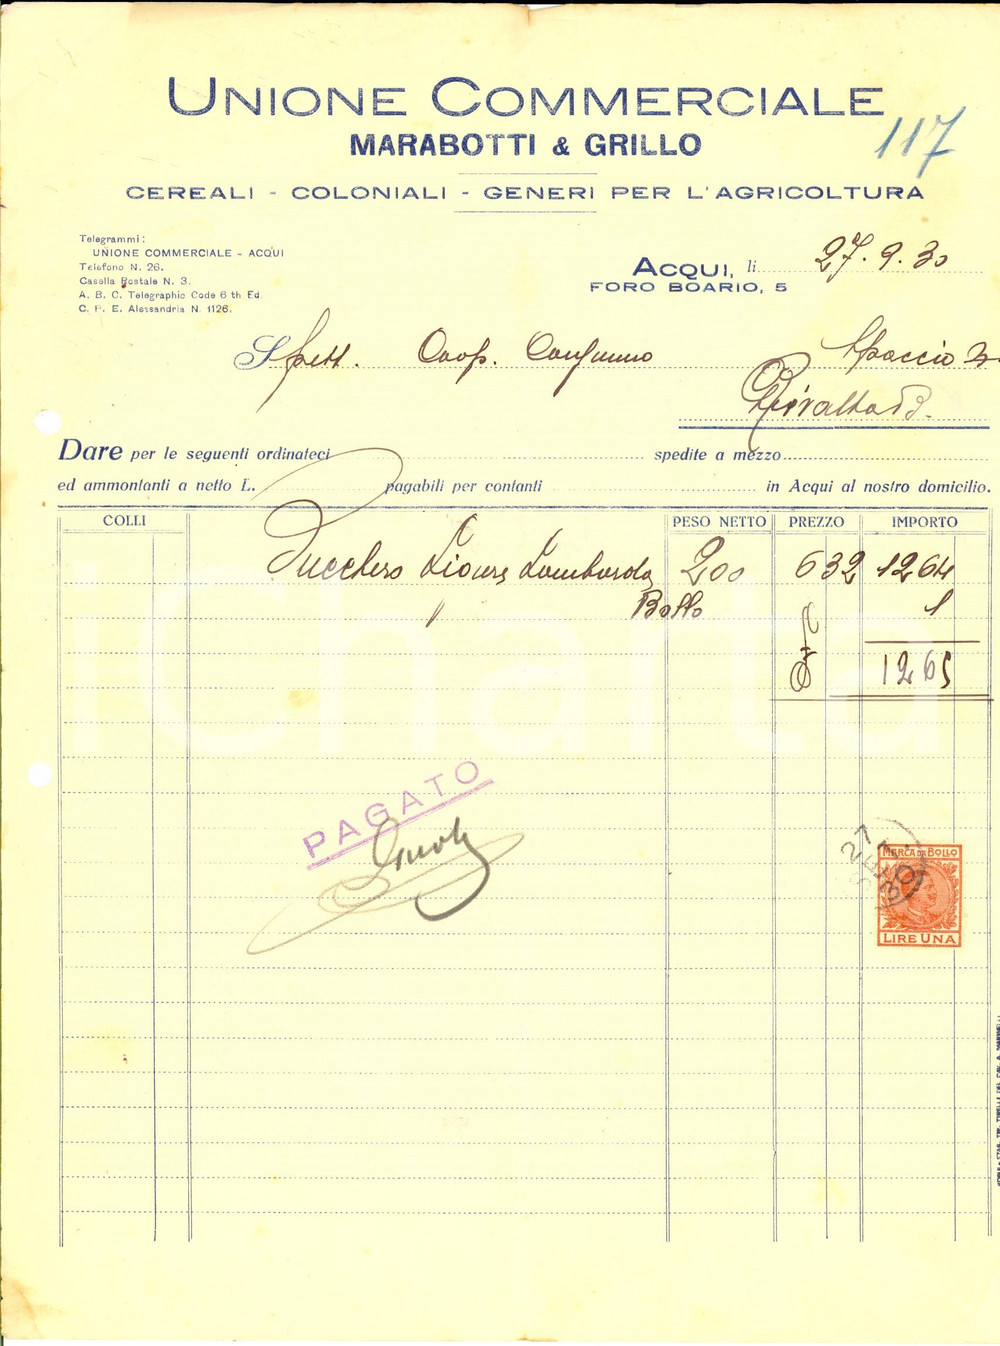 UNIONE COMMERCIALE
MARABOTTI & GRILLO
117
CEREALI - COLONIALI - GENERI PER L'AGRICOLTURA
Telegrammi:
UNIONE COMMERCIALE - ACQUI
Telefono N. 26.
Casella Postale N. 3.
A. B. C. Telegraphic Code 6 th Ed.
C. P. E. Alessandria N. 1126.
ACQUI, li 27.9.30
FORO BOARIO, 5
Spett. Coop. Consumo Spaccio
Rivalta B.
Dare per le seguenti ordinateci spedite a mezzo
ed ammontanti a netto L. pagabili per contanti in Acqui al nostro domicilio.
COLLI PESO NETTO PREZZO IMPORTO
Zucchero Ligure Lombarda 200 632 1264
Bollo 1
1265
PAGATO
27
SET.
30
MARCA DA BOLLO
LIRE UNA
iCharta